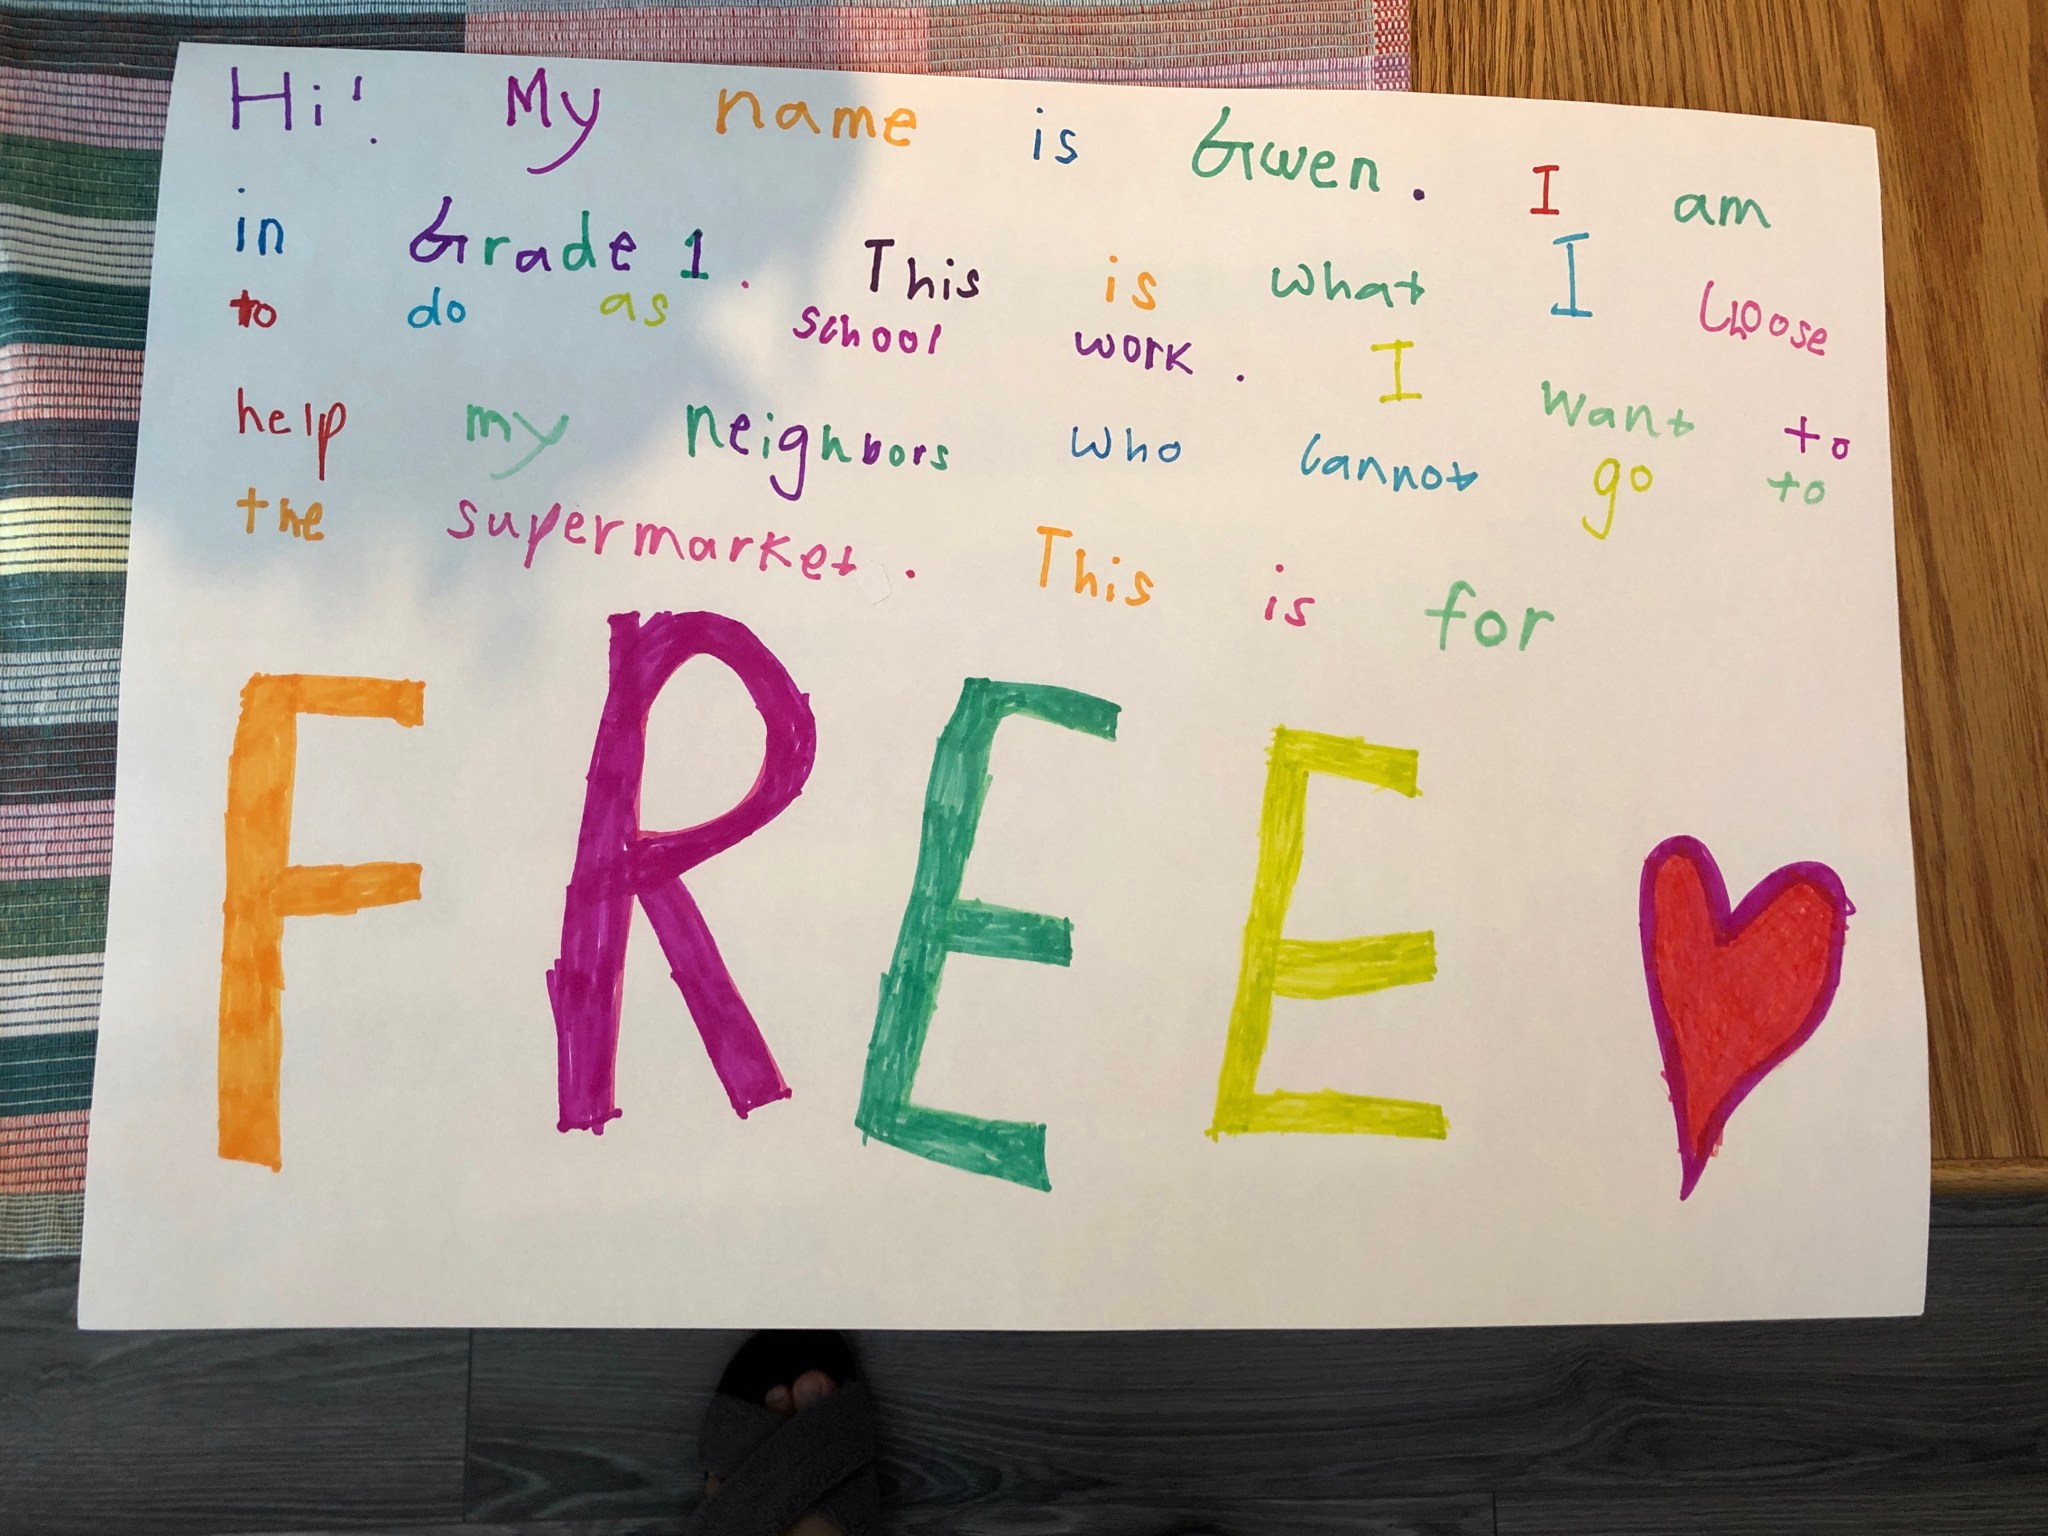 Hi! My name is Gwen. I am
in Grade 1. This is what I choose
to do as school work. I want to
help my neighbors who cannot go to
the supermarket. This is for
FREE